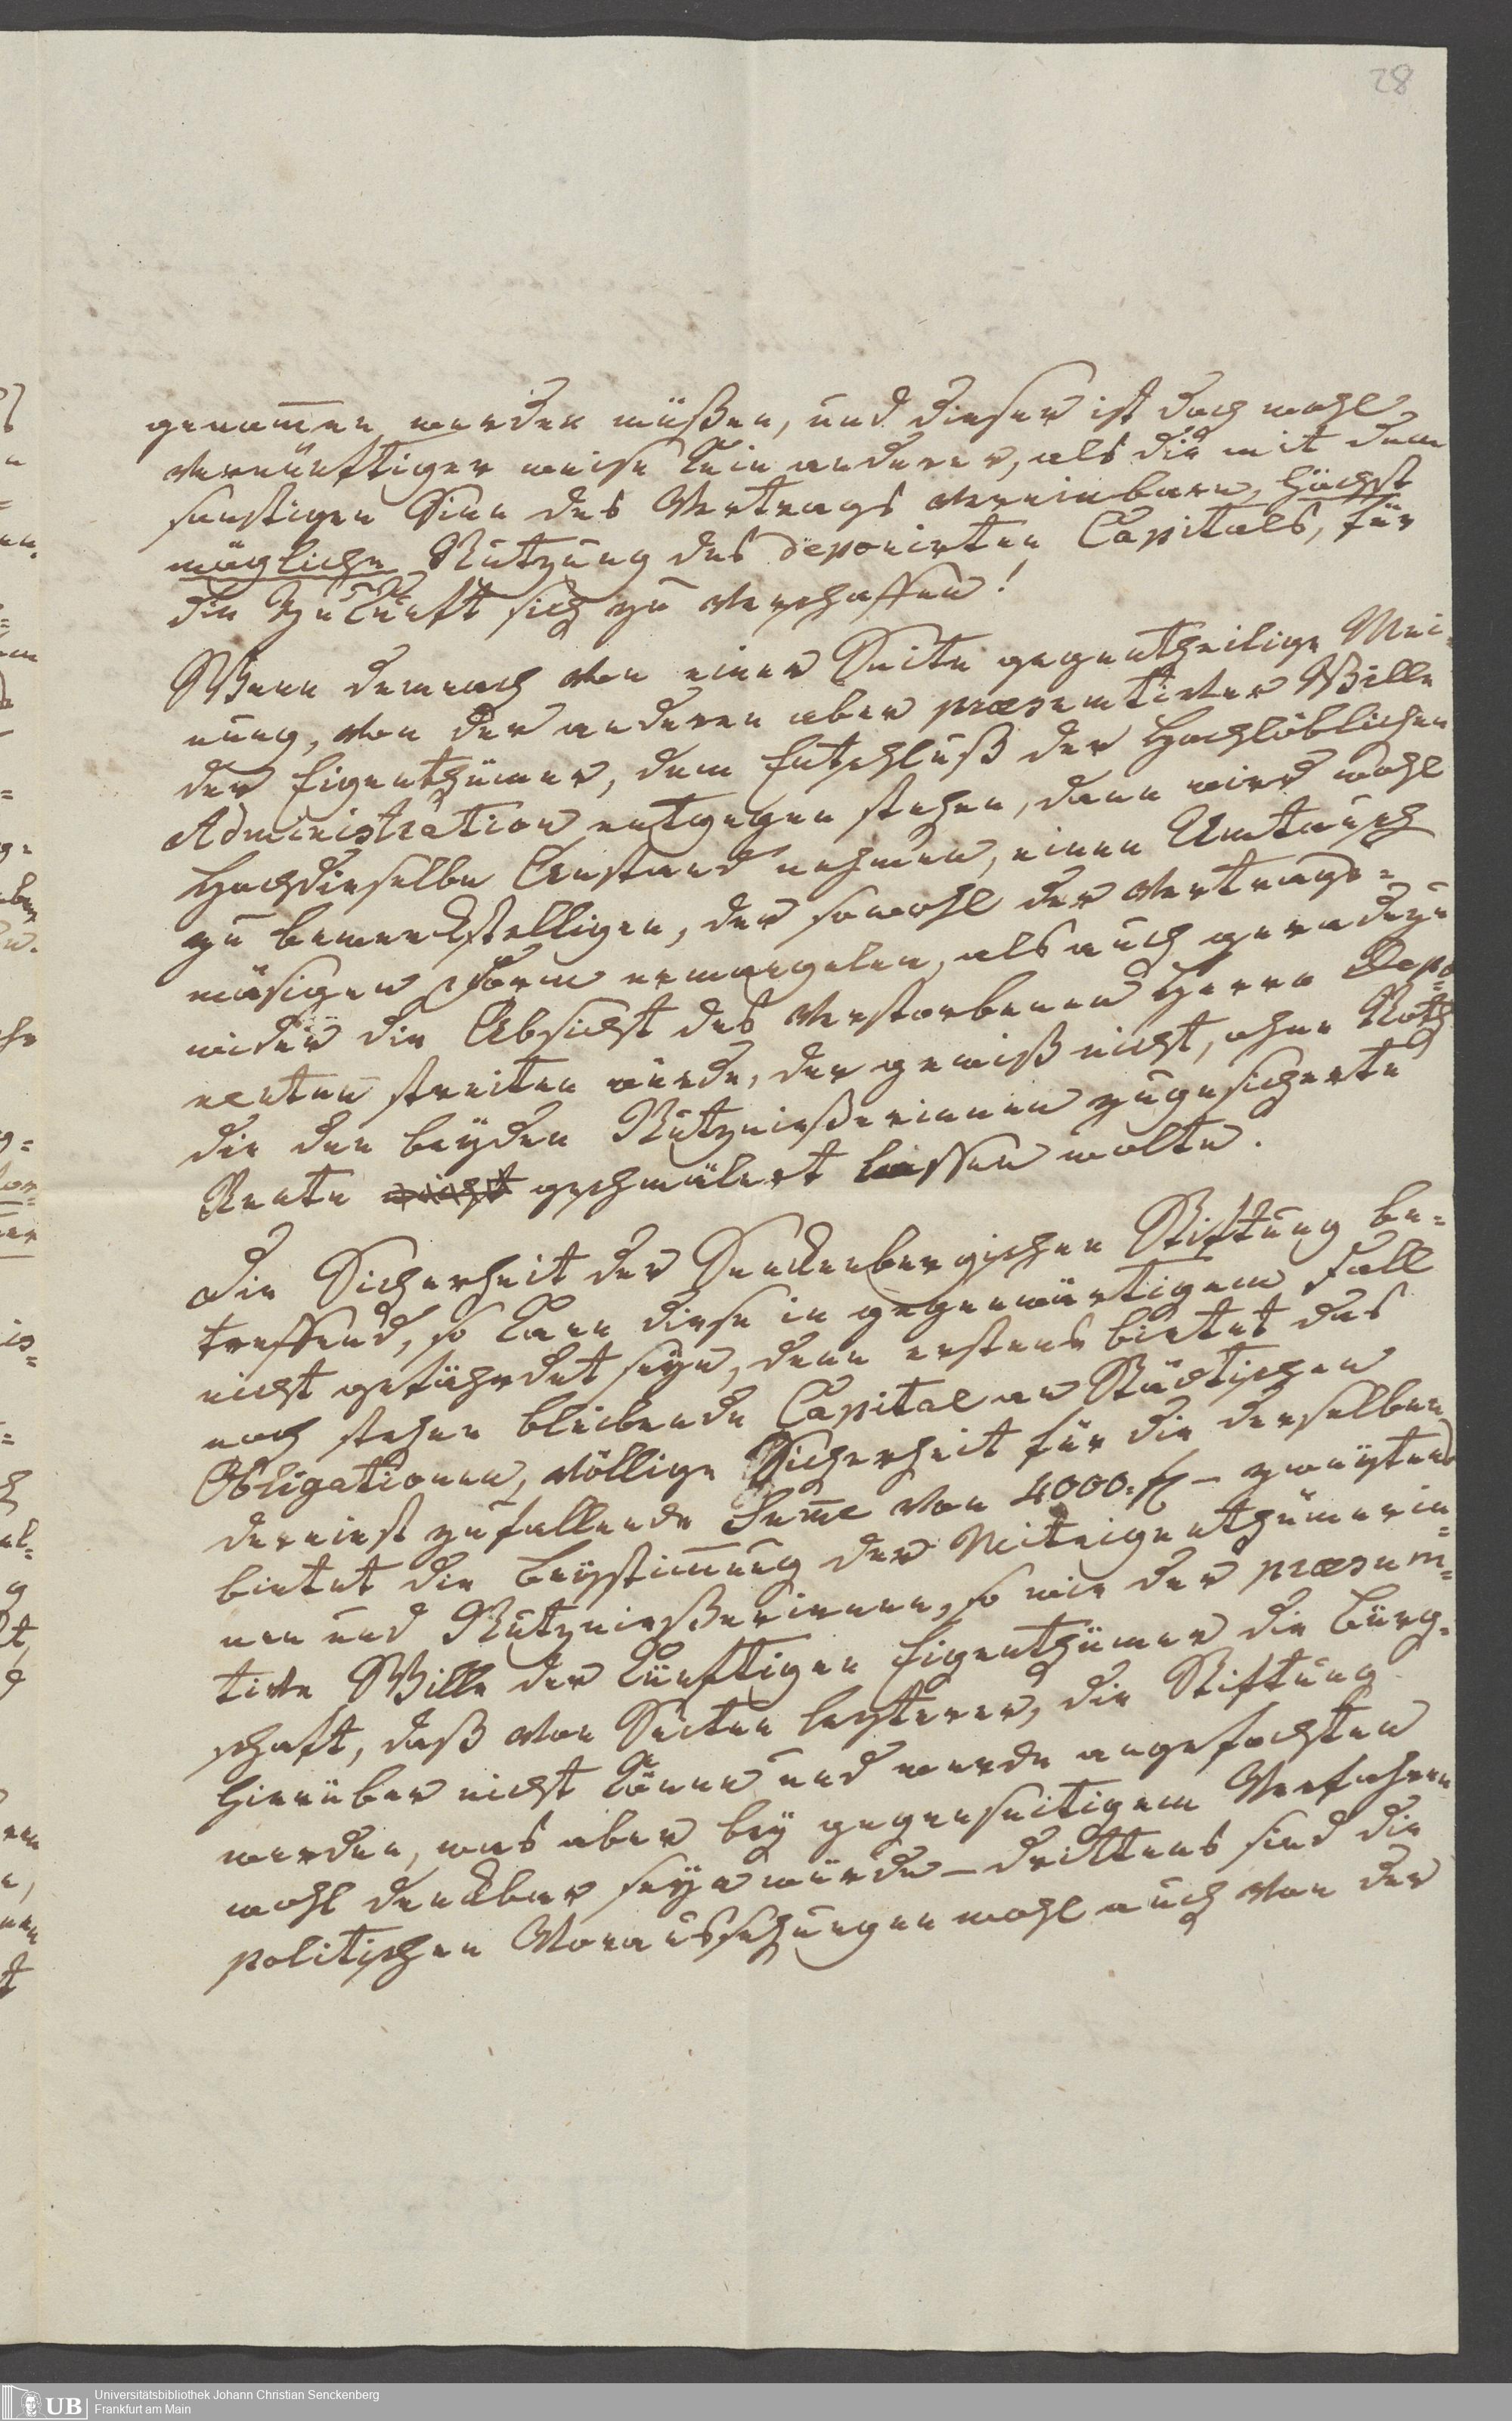 28
genom̄en werden müßen, und dieser ist doch wohl
vernünftiger weise kein anderer, als die mit dem
sonstigen Sinn des Vertrags vereinbare, höchst
mögliche Nutzung des deponirten Capitals, für
die Zukunft sich zu verschaffen!
Wenn demnach von einer Seite gegentheilige Mei-
nung, von der anderen aber præsumtiver Wille
der Eigenthümer, dem Entschluß der Hochlöblichen
Administration entgegen stehen, dann wird wohl
Hochdieselbe Anstand nehmen, einen Umtausch
zu bewerckstelligen, der sowohl der Vertrags-
mäsigen Form ermangelen, als auch geradezu
wider die Absicht des Verstorbenen Herrn Depo-
nenten streiten würde, der gewiß nicht, ohne Noth
die den beyden Nutznießerinnen zugesicherte
Rente nicht geschmälert lassen wolte.
Die Sicherheit der Senckenbergischen Stiftung be-
treffend, so kann diese in gegenwärtigem Fall
nicht gefährdet seyn, denn erstens bietet das
noch stehen bleibende Capital an Städtischen
Obligationen, völlige Sicherheit für die derselben
dereinst zufallende Sum̄e von 4000. fl – zweytens
bietet die Beystim̄ung der Miteigenthümerin-
nen und Nutznießerinnen, so wie der præsum-
tive Wille der künftigen Eigenthümer die Bürg-
schaft, daß von Seiten letzterer, die Stiftung
hierüber nicht könne und werde angefochten
werden, was aber bey gegenseitigem Verfahren
wohl denckbar seyn würde – drittens sind die
politischen Voraussehungen wohl auch von der
UB
Universitätsbibliothek Johann Christian Senckenberg
Frankfurt am Main